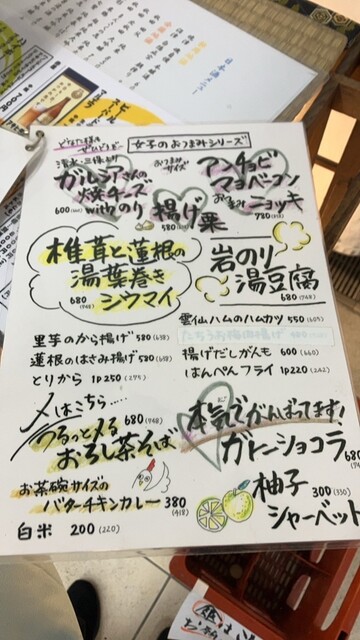 どなた様も
ぜひどうぞ…
女子のおつまみシリーズ
清水・三保より
ガルシアさんの
火焼チーズ
withのり
600(660)
おつまみサイズ
揚げ栗
580
アンチョビ
マヨベーコン
おつまみニョッキ
780
椎茸と蓮根の
湯葉巻き
シウマイ
680(748)
岩のり
湯豆腐
680(748)
里芋のから揚げ 580(638)
蓮根のはさみ揚げ 580(638)
とりから 1p 250(275)
雲仙ハムのハムカツ 550(605)
たちうお梅肉揚げ
揚げだしがんも 600(660)
はんぺんフライ 1p 220(242)
〆はこちら……
つるっと〆る 680(748)
おろし茶そば
お茶碗サイズの
バターチキンカレー 380
(418)
白米 200(220)
本気でがんばってます!
ガトーショコラ
680
柚子
シャーベット
300(330)